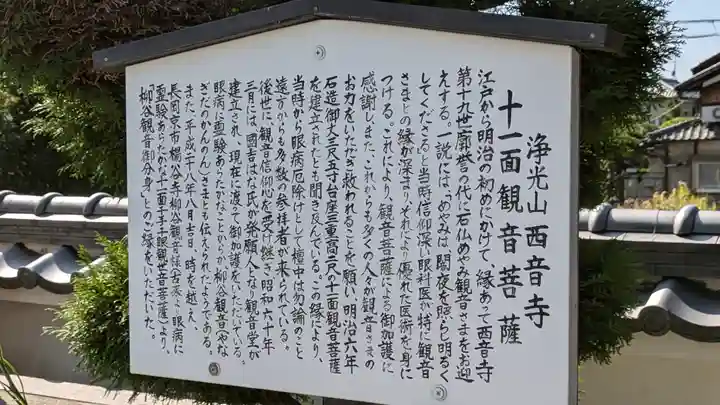 浄光山西音寺
十一面観音菩薩
江戸から明治の初めにかけて、縁あって西音寺
第十九世廓誉の代に石仏めやみ観音さまをお迎
えする。一説には、「めやみは闇夜を照らし明るく
してくださる」と当時信仰深い眼科医が特に観音
さまとの縁が深まり、それにより優れた医術を身に
つける。これにより、観音菩薩による御加護に
感謝しまた、これからも多くの人々が観音さまの
お力をいただき救われることを願い明治六年
石造御丈三尺五寸台座三重高二尺の十一面観音菩薩
を建立されたとも聞き及んでいる。この縁により、
当時から眼病厄除けとして檀中は勿論のこと
遠方からも多数の参拝者が来られている。
後世に、観音信仰心を受け継ぎ昭和六十年
三月には、國吉はな氏が発願人となり観音堂が
建立され、現在に渡って御加護をいただいている。
眼病に霊験あらたかなことからか柳谷観音(やな
ぎだのかんのん)さまとも伝えられたようである。
また、平成二十八年八月吉日、時を越え、
長岡京市楊谷寺柳谷観音様(古来より眼病に
霊験あらたかな十一面千手千眼観世音菩薩)より、
「柳谷観音御分身」とのご縁をいただいた。